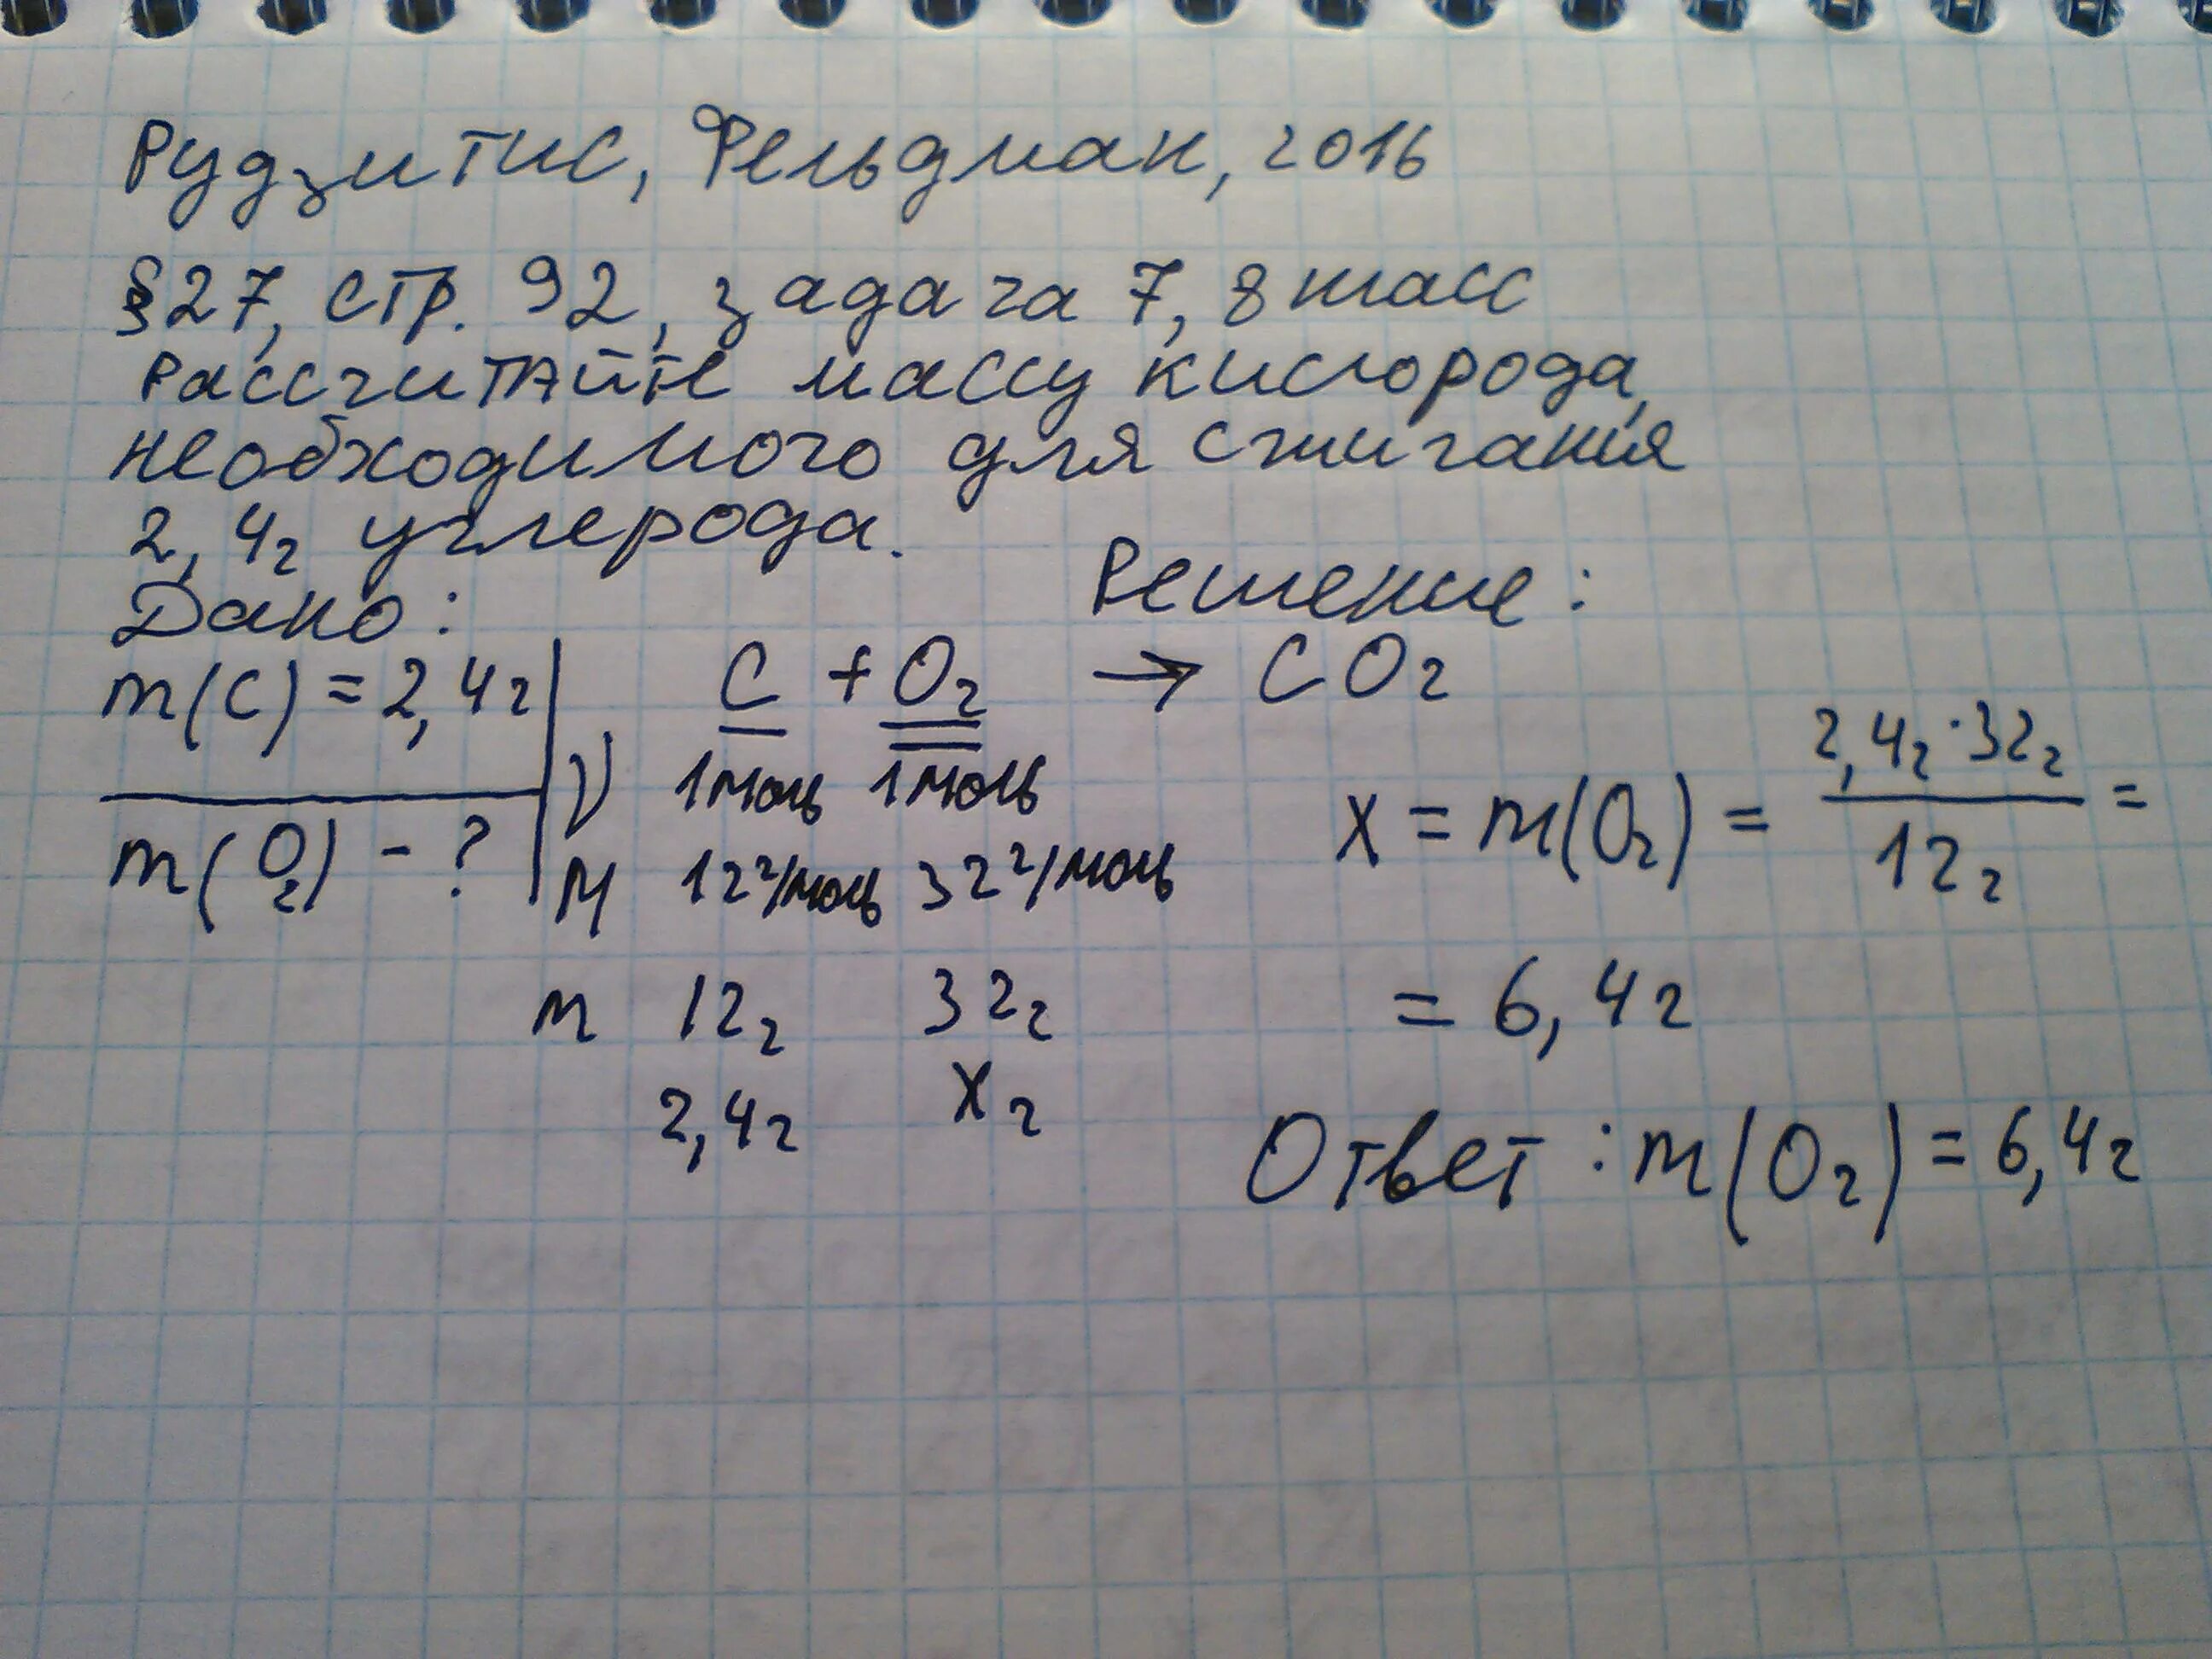 Рудзитис, Фельдман, 2016
§27, стр. 92, задача 7, 8 класс
Рассчитайте массу кислорода,
необходимого для сжигания
2,4г углерода.
Дано:
Решение:
m(C) = 2,4г
C + O₂ → CO₂
ν 1моль 1моль
m(O₂) - ?
M 12г/моль 32г/моль
m 12г 32г
2,4г Xг
X = m(O₂) = 2,4г·32г / 12г =
= 6,4г
Ответ: m(O₂) = 6,4г